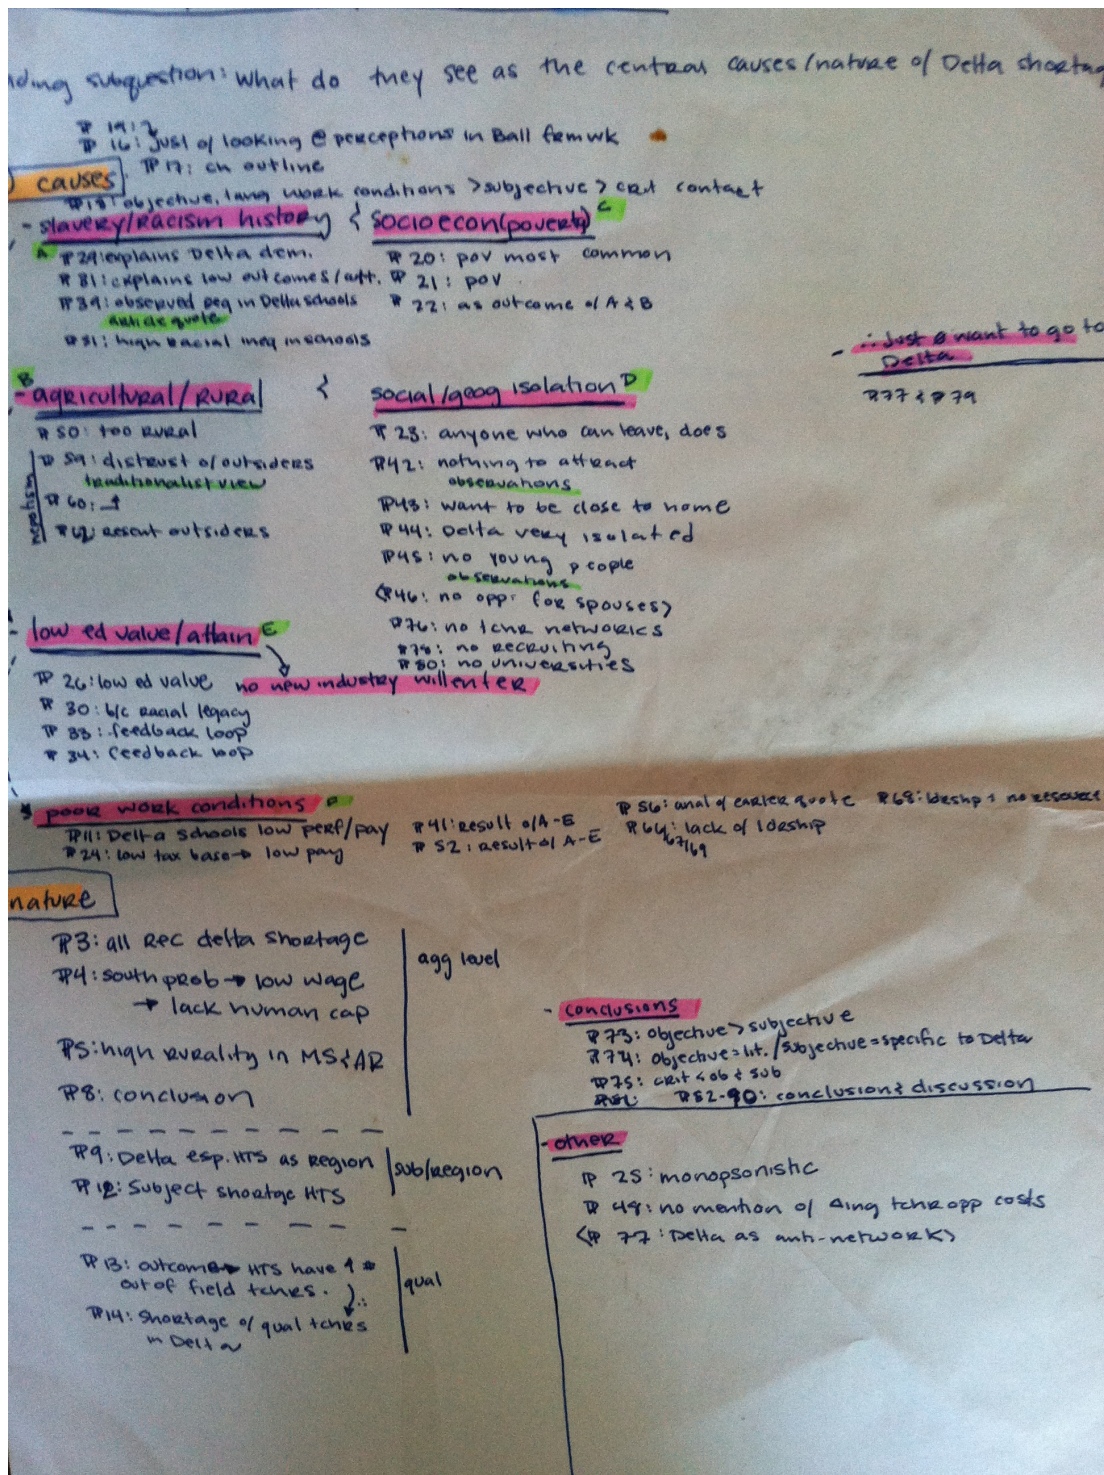 nding subquestion: What do they see as the central causes/nature of Delta shortag
¶ 19: ?
¶ 16: just of looking @ perceptions in Ball frmwk
causes
¶ 17: ch outline
objective, lang work conditions > subjective > crit contact
- slavery/racism history { socioecon (poverty) C
A ¶ 29: explains Delta dem.
¶ 31: explains low outcomes/att.
¶ 39: observed seg in Delta schools
article quote
¶ 51: high racial ineq in schools
¶ 20: pov most common
¶ 21: pov
¶ 22: as outcome of A & B
- ∴ Just ø want to go to
Delta
¶ 77 & ¶ 79
B
- agricultural/rural { social/geog isolation D
¶ 50: too rural
¶ 59: distrust of outsiders
traditionalist view
¶ 60:
¶ 62: resent outsiders
nepotism
¶ 23: anyone who can leave, does
¶ 42: nothing to attract
observations
¶ 43: want to be close to home
¶ 44: Delta very isolated
¶ 45: no young people
observations
<¶ 46: no opp. for spouses>
¶ 76: no tchr networks
¶ 78: no recruiting
¶ 80: no universities
- low ed value/attain E
¶ 26: low ed value
no new industry will enter
¶ 30: b/c racial legacy
¶ 33: feedback loop
¶ 34: feedback loop
poor work conditions
¶ 11: Delta schools low perf/pay
¶ 24: low tax base → low pay
¶ 41: result of A-E
¶ 52: result of A-E
¶ 56: anal of earlier quote
¶ 64: lack of ldrship
67/69
¶ 68: ldrshp & no resource
nature
¶ 3: all rec delta shortage
¶ 4: south prob → low wage
→ lack human cap
¶ 5: high rurality in MS & AR
¶ 8: conclusion
agg level
¶ 9: Delta esp. HTS as region
¶ 12: Subject shortage HTS
sub/region
¶ 13: outcome → HTS have ↑ #
out of field tchrs.
∴
¶ 14: shortage of qual tchrs
in Delta
qual
- conclusions
¶ 73: objective > subjective
¶ 74: objective = lit. / subjective = specific to Delta
¶ 75: crit < ob & sub
¶ 82-90: conclusion & discussion
- other
¶ 25: monopsonistic
¶ 48: no mention of Δing tchr opp costs
<¶ 77: Delta as anti-network>